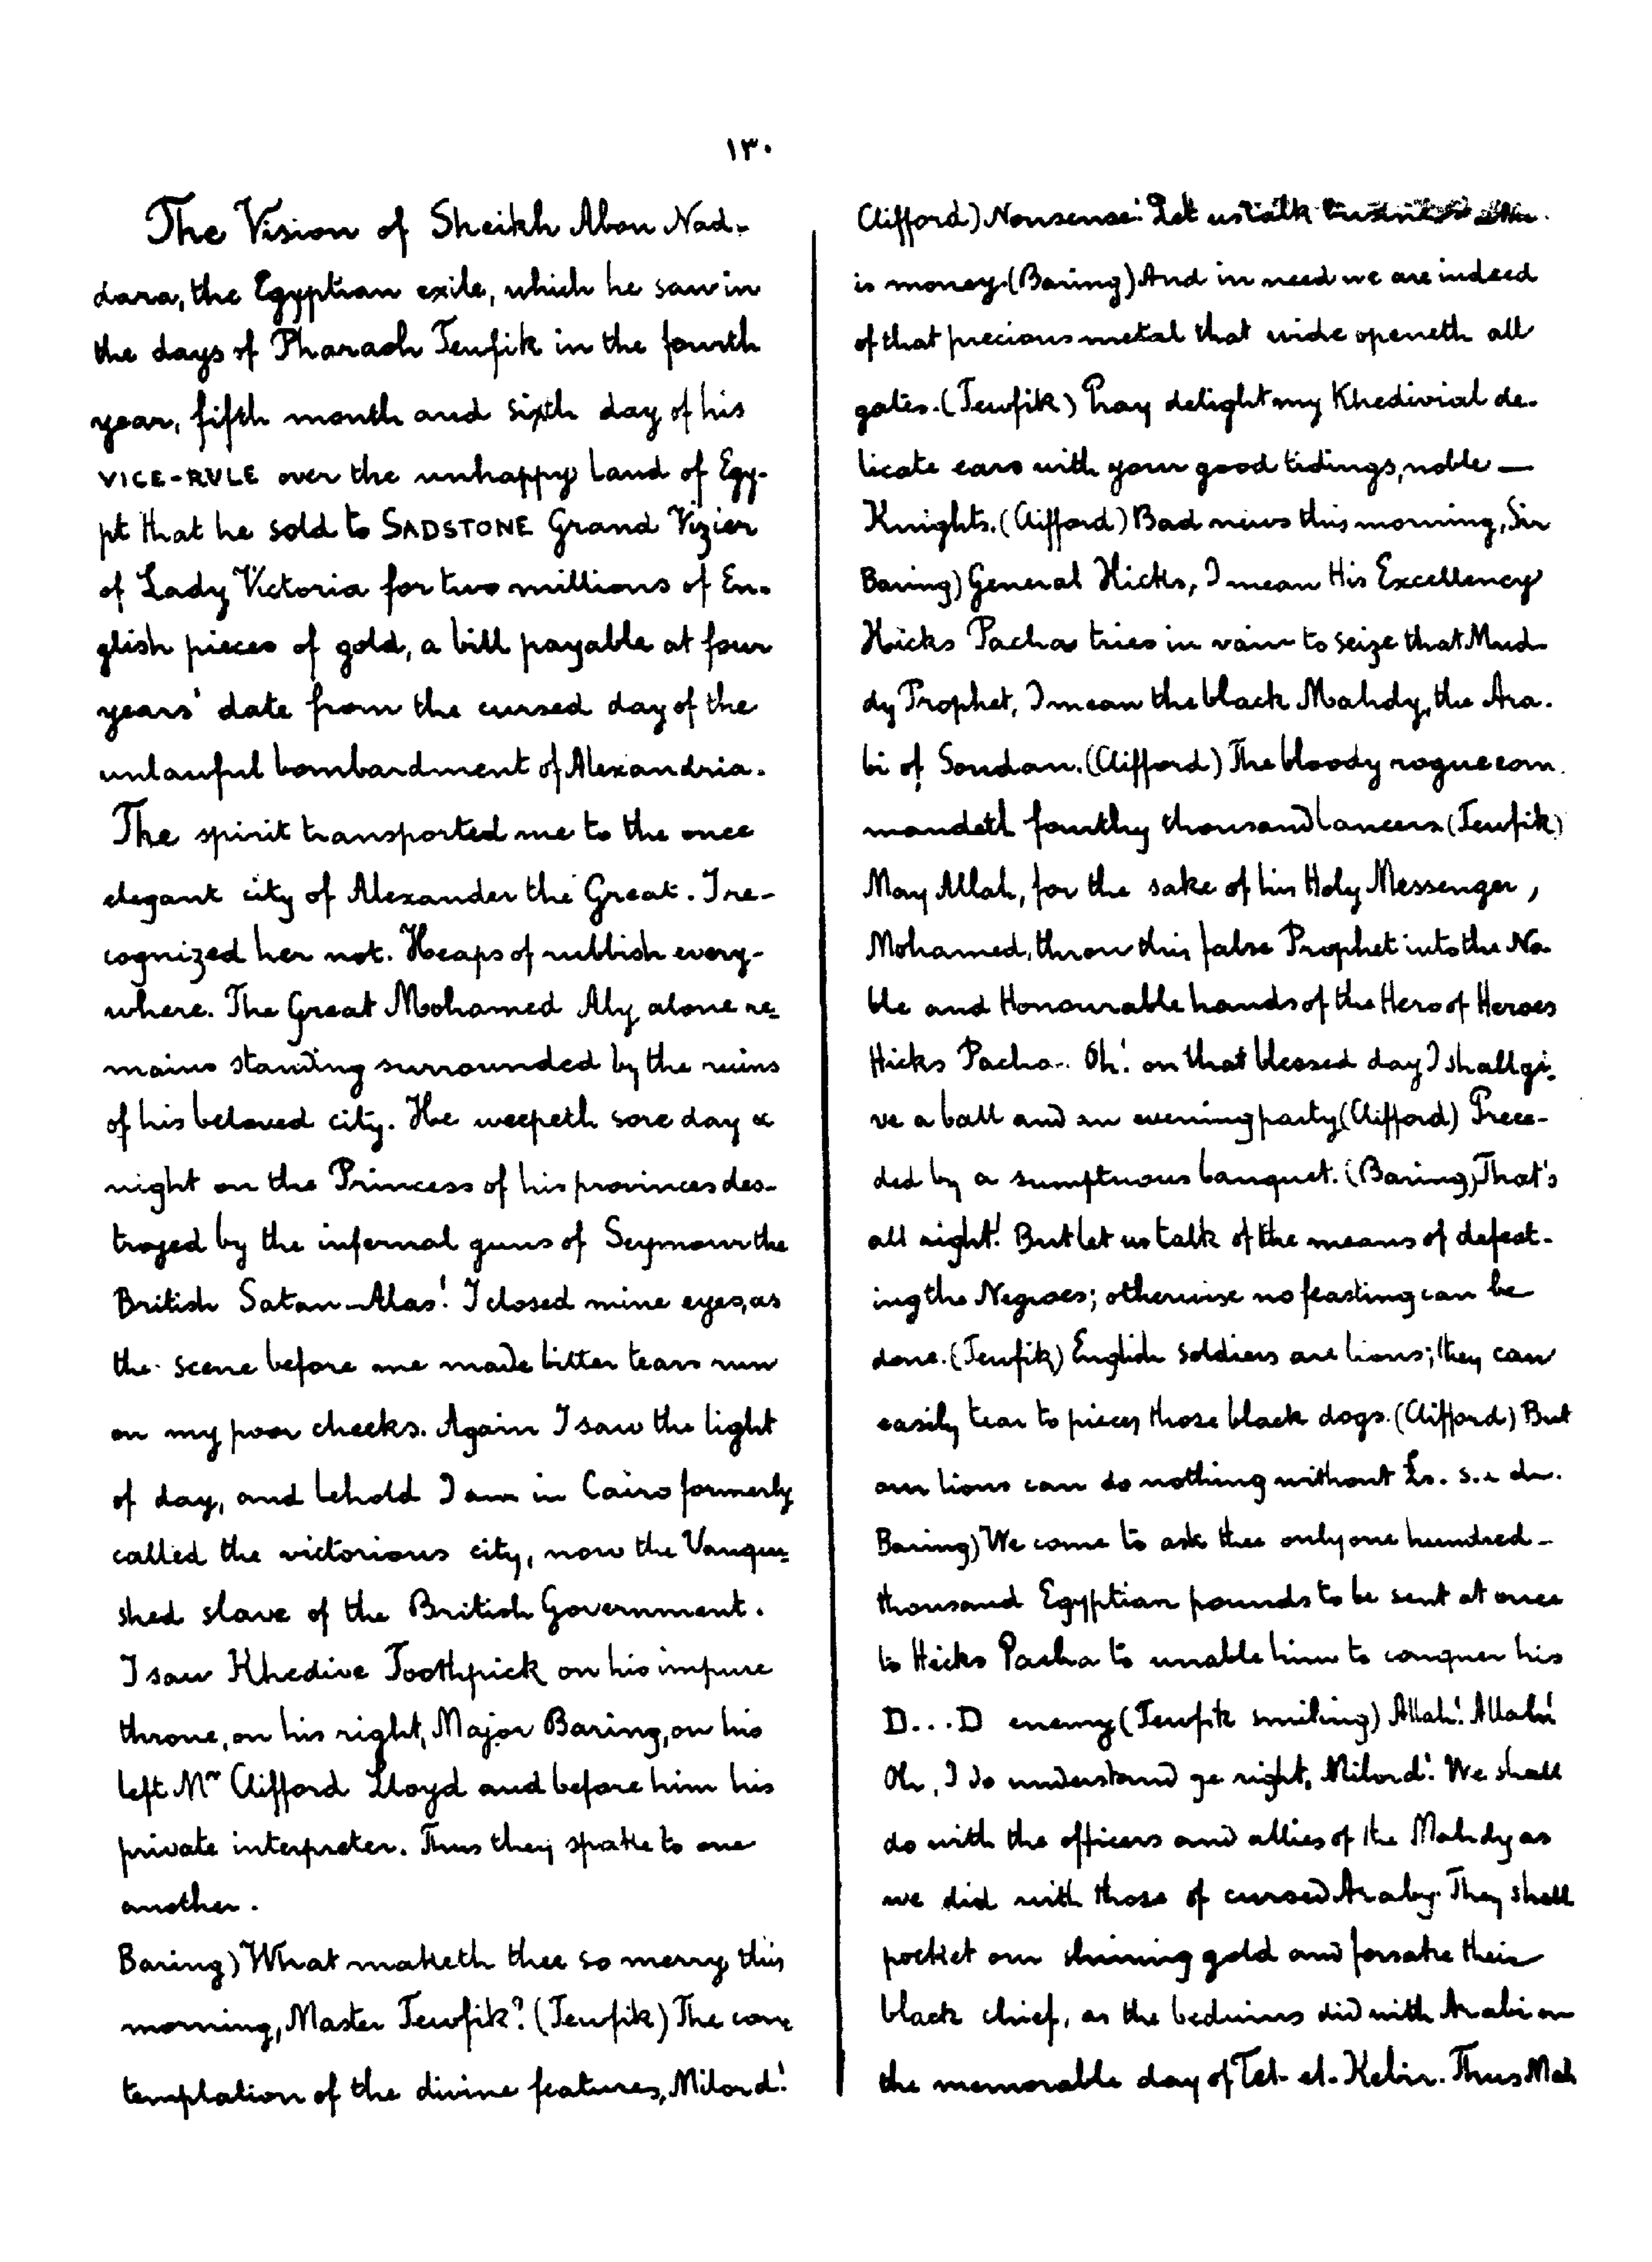 ١٣٠
The Vision of Sheikh Abou Nad-
dara, the Egyptian exile, which he saw in
the days of Pharaoh Tewfik in the fourth
year, fifth month and sixth day of his
VICE-RULE over the unhappy land of Egy-
pt that he sold to SADSTONE Grand Vizier
of Lady Victoria for two millions of En-
glish pieces of gold, a bill payable at four
years' date from the cursed day of the
unlawful bombardment of Alexandria.
The spirit transported me to the once
elegant city of Alexander the Great. I re-
cognized her not. Heaps of rubbish every-
where. The Great Mohamed Aly alone re-
mains standing surrounded by the ruins
of his beloved city. He weepeth sore day &
night on the Princess of his provinces des-
troyed by the infernal guns of Seymour the
British Satan - Alas! I closed mine eyes, as
the scene before me made bitter tears run
on my poor cheeks. Again I saw the light
of day, and behold I am in Cairo formerly
called the victorious city, now the Vanqui-
shed slave of the British Government.
I saw Khedive Toothpick on his impure
throne, on his right, Major Baring, on his
left Mr Clifford Lloyd and before him his
private interpreter. Thus they spake to one
another.
Baring) What maketh thee so merry this
morning, Master Tewfik? (Tewfik) The con-
templation of the divine features, Milord!
Clifford) Nonsense! Let us talk
is money. (Baring) And in need we are indeed
of that precious metal that wide openeth all
gates. (Tewfik) Pray delight my Khedivial de-
licate ears with your good tidings, noble —
Knights. (Clifford) Bad news this morning, Sir
Baring) General Hicks, I mean His Excellency
Hicks Pacha tries in vain to seize that Mud-
dy Prophet, I mean the black Mahdy, the Ara-
bi of Soudan. (Clifford) The bloody rogue com-
mandeth fourthy thousand lancers. (Tewfik)
May Allah, for the sake of his Holy Messenger,
Mohamed, throw this false Prophet into the No-
ble and Honourable hands of the Hero of Heroes
Hicks Pacha.. Oh! on that blessed day I shall gi-
ve a ball and an evening party (Clifford) Prece-
ded by a sumptuous banquet. (Baring) That's
all right! But let us talk of the means of defeat-
ing the Negroes; otherwise no feasting can be
done. (Tewfik) English soldiers are lions; they can
easily tear to pieces those black dogs. (Clifford) But
our lions can do nothing without £s. s. & d.
Baring) We come to ask thee only one hundred -
thousand Egyptian pounds to be sent at once
to Hicks Pacha to unable him to conquer his
D...D enemy (Tewfik smiling) Allah! Allah!
Oh, I do understand ye right, Milord! We shall
do with the officers and allies of the Mahdy as
we did with those of cursed Araby. They shall
pocket our shining gold and forsake their
black chief, as the beduins did with Arabi on
the memorable day of Tel-el-Kebir. Thus Mah